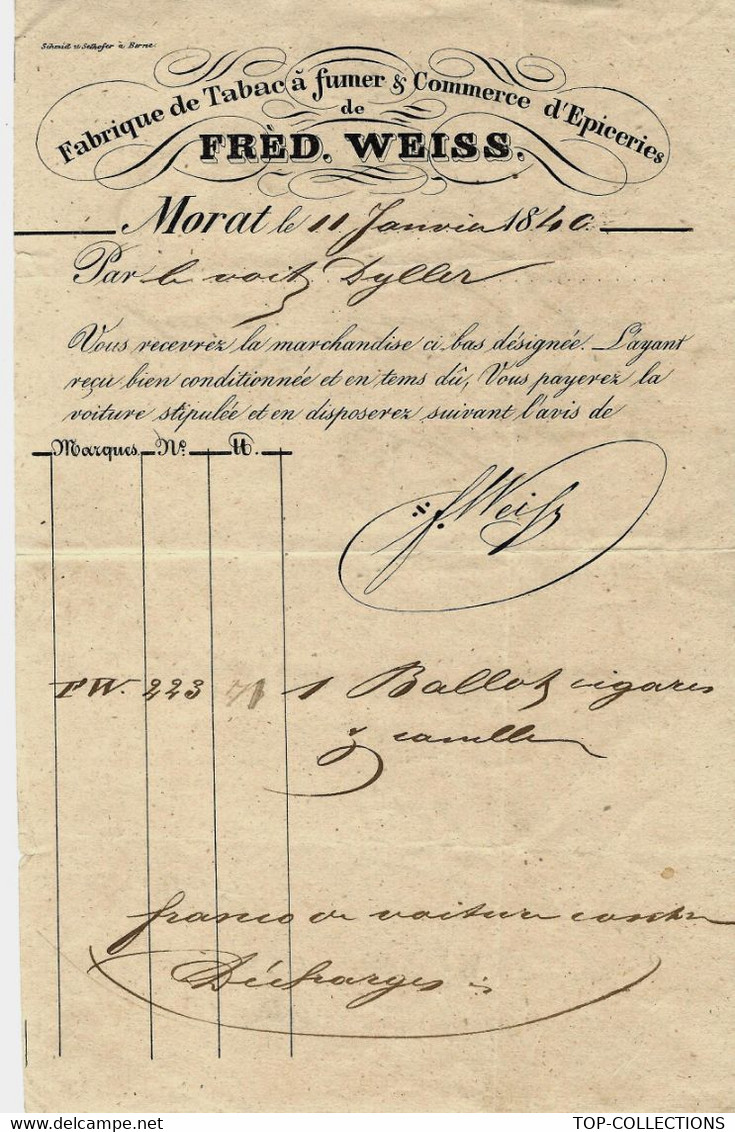 Schmid & Selhofer à Berne.
Fabrique de Tabac à fumer & Commerce d'Epiceries
de
FRÈD. WEISS.
Morat le 11 Janvier 1840
Par le voit Dyller
Vous recevrèz la marchandise ci bas désignée. L'ayant
reçu bien conditionnée et en tems dû, Vous payerez la
voiture stipulée et en disposerez suivant l'avis de
Marques. Nº. ℔.
f. Weiss
FW. 223 71 1 Ballot cigares
franco de voiture contre
Décharges
TOP-COLLECTIONS
www.delcampe.net